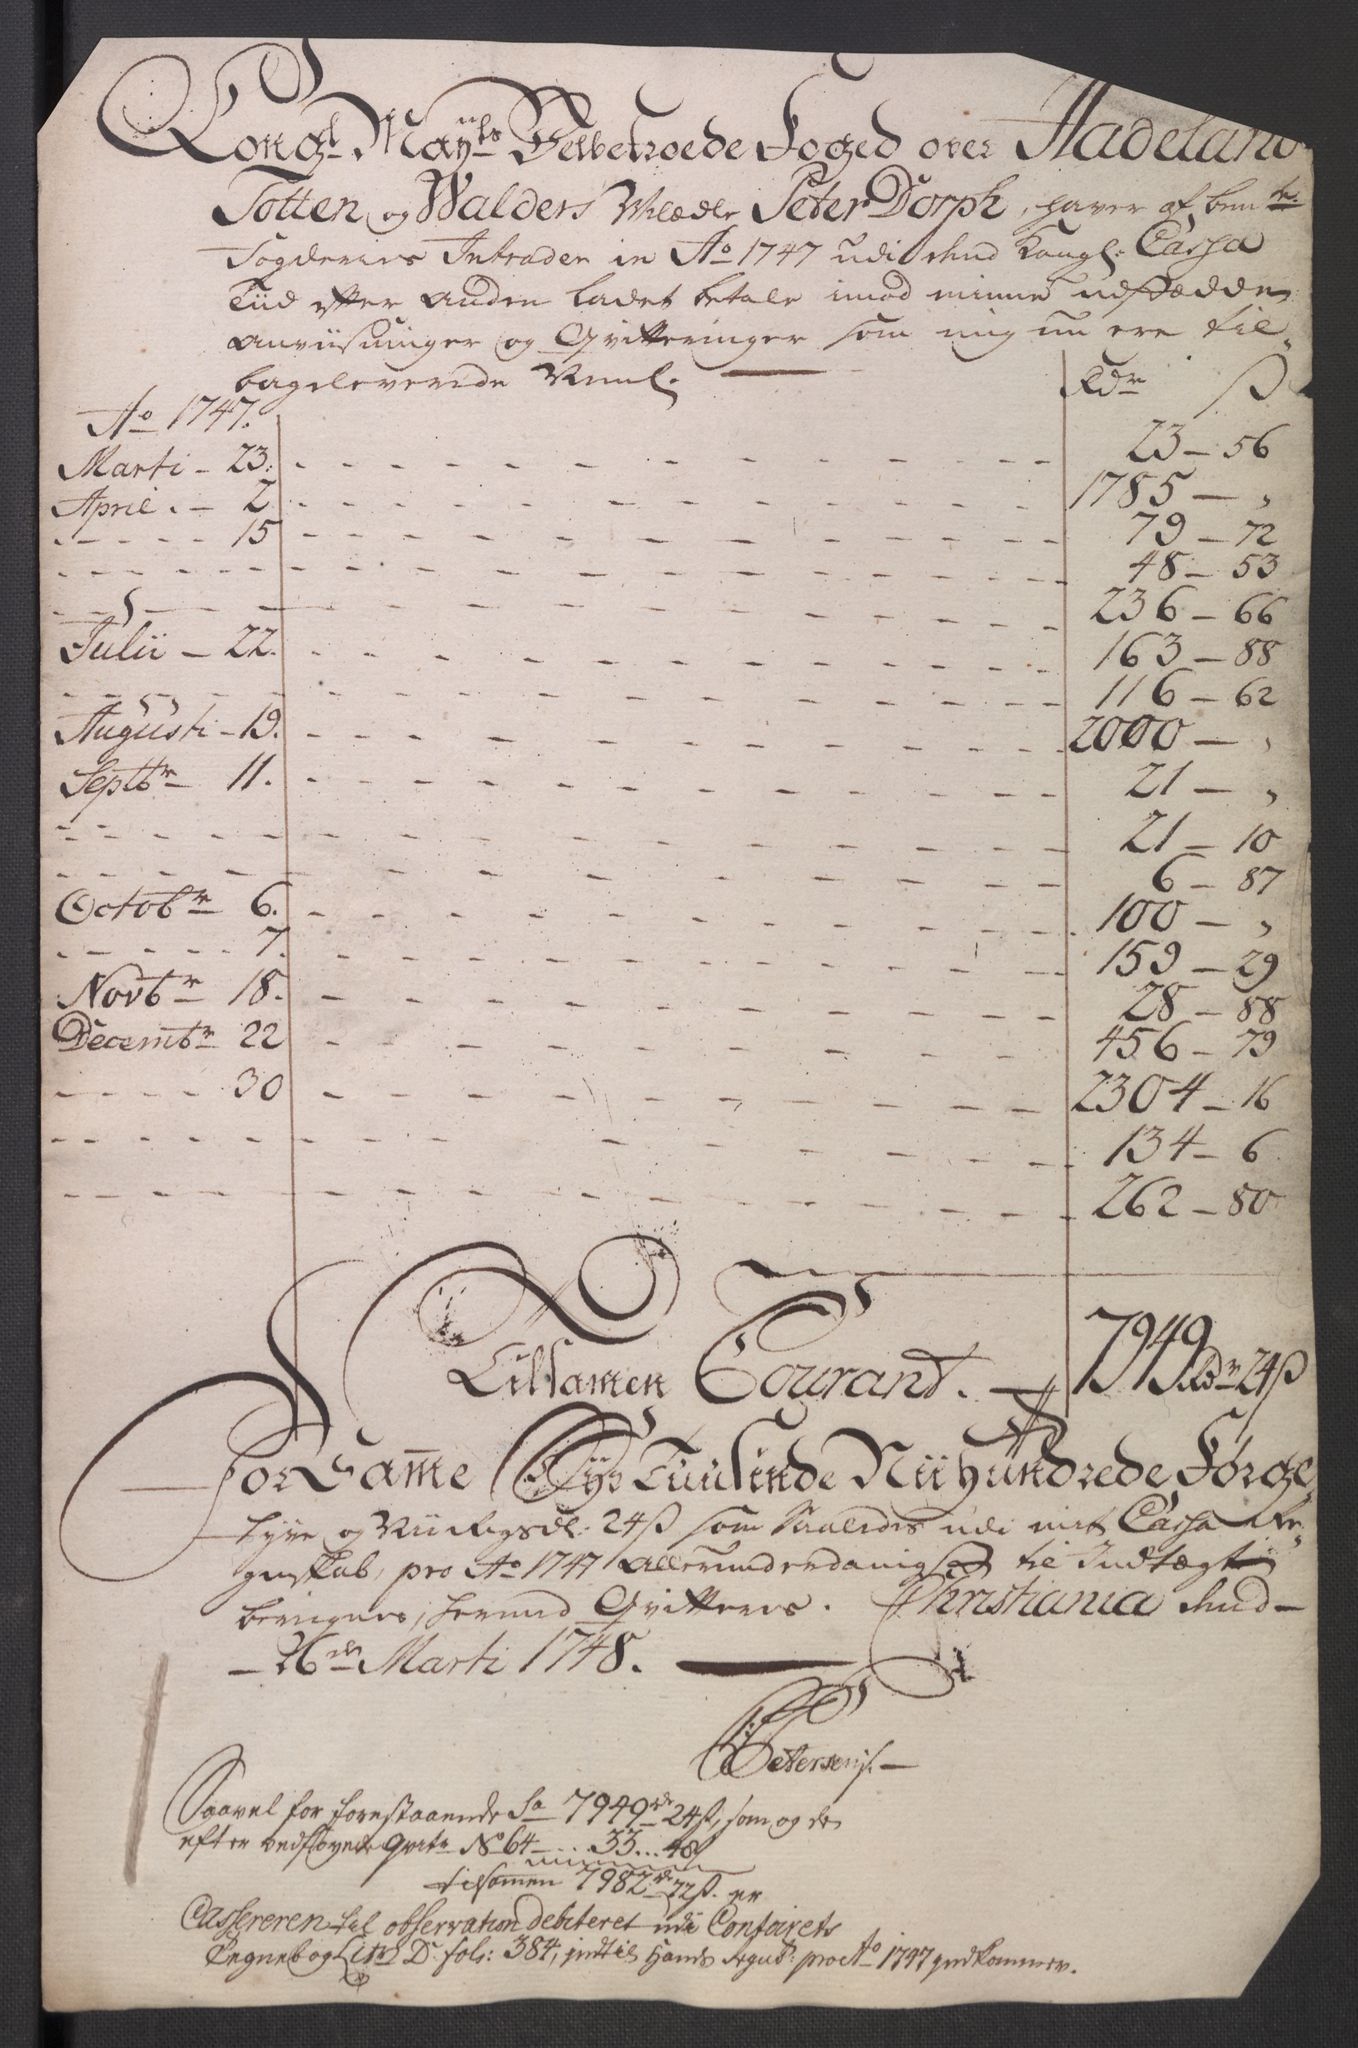 Kongl Mayts Velbetroede Foged over Hadeland
Totten og Walders Velædle Peter Dorph, haver af bemte
Fogderies Intrader in Ao 1747 udi Kongl. Cassa
Tiid efter anden ladet betale imod minne udstædde
Anviisninger og Qvitteringer som mig nu ere til,,
bageleverede Neml.
Rdr ß
Ao 1747.
Marti - 23. 23 - 56
April. - 2 1785 - "
15 79 - 72
48 - 53
236 - 66
Julii - 22. 163 - 88
116 - 62
Augusti - 19. 2000 - "
Septbr - 11. 21 - "
21 - 10
6 - 87
Octobr 6. 100 - "
7. 159 - 29
Novbr - 18. 28 - 88
Decembr 22 456 - 79
30 2304 - 16
134 - 6
262 - 80
Tilsamen Courant. 7949 Rdr 24 ß
For Same Syv Tuusinde Nii hundrede Førge,,
tyve og Nii Rigsdl: 24 ß som Saaledes udi mit Cassa Re,,
gnskab, pro Ao 1747 allerunderdanigst til Indtægt
beregnes, herved Qvitteres. Christiania
26de Marti 1748.
Petersen
Saavel for forestaaende Sa 7949 rd 24 ß, som og de
efter vedføyede qvitr No 64 ... 33 ... 48
tilsamen 7982 rd 72 ß. er
Cassereren til observation debiteret udi Contoirets
Regnebog Litr D. fol: 384, indtil Hands regnsk: pro Ao 1747 indkommer.